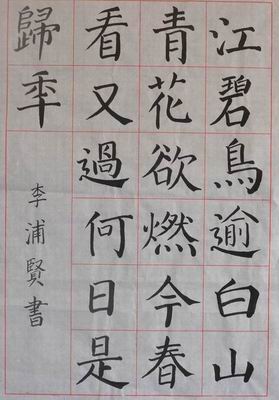 江碧鳥逾白山
青花欲燃今春
看又過何日是
歸秊
李浦賢書